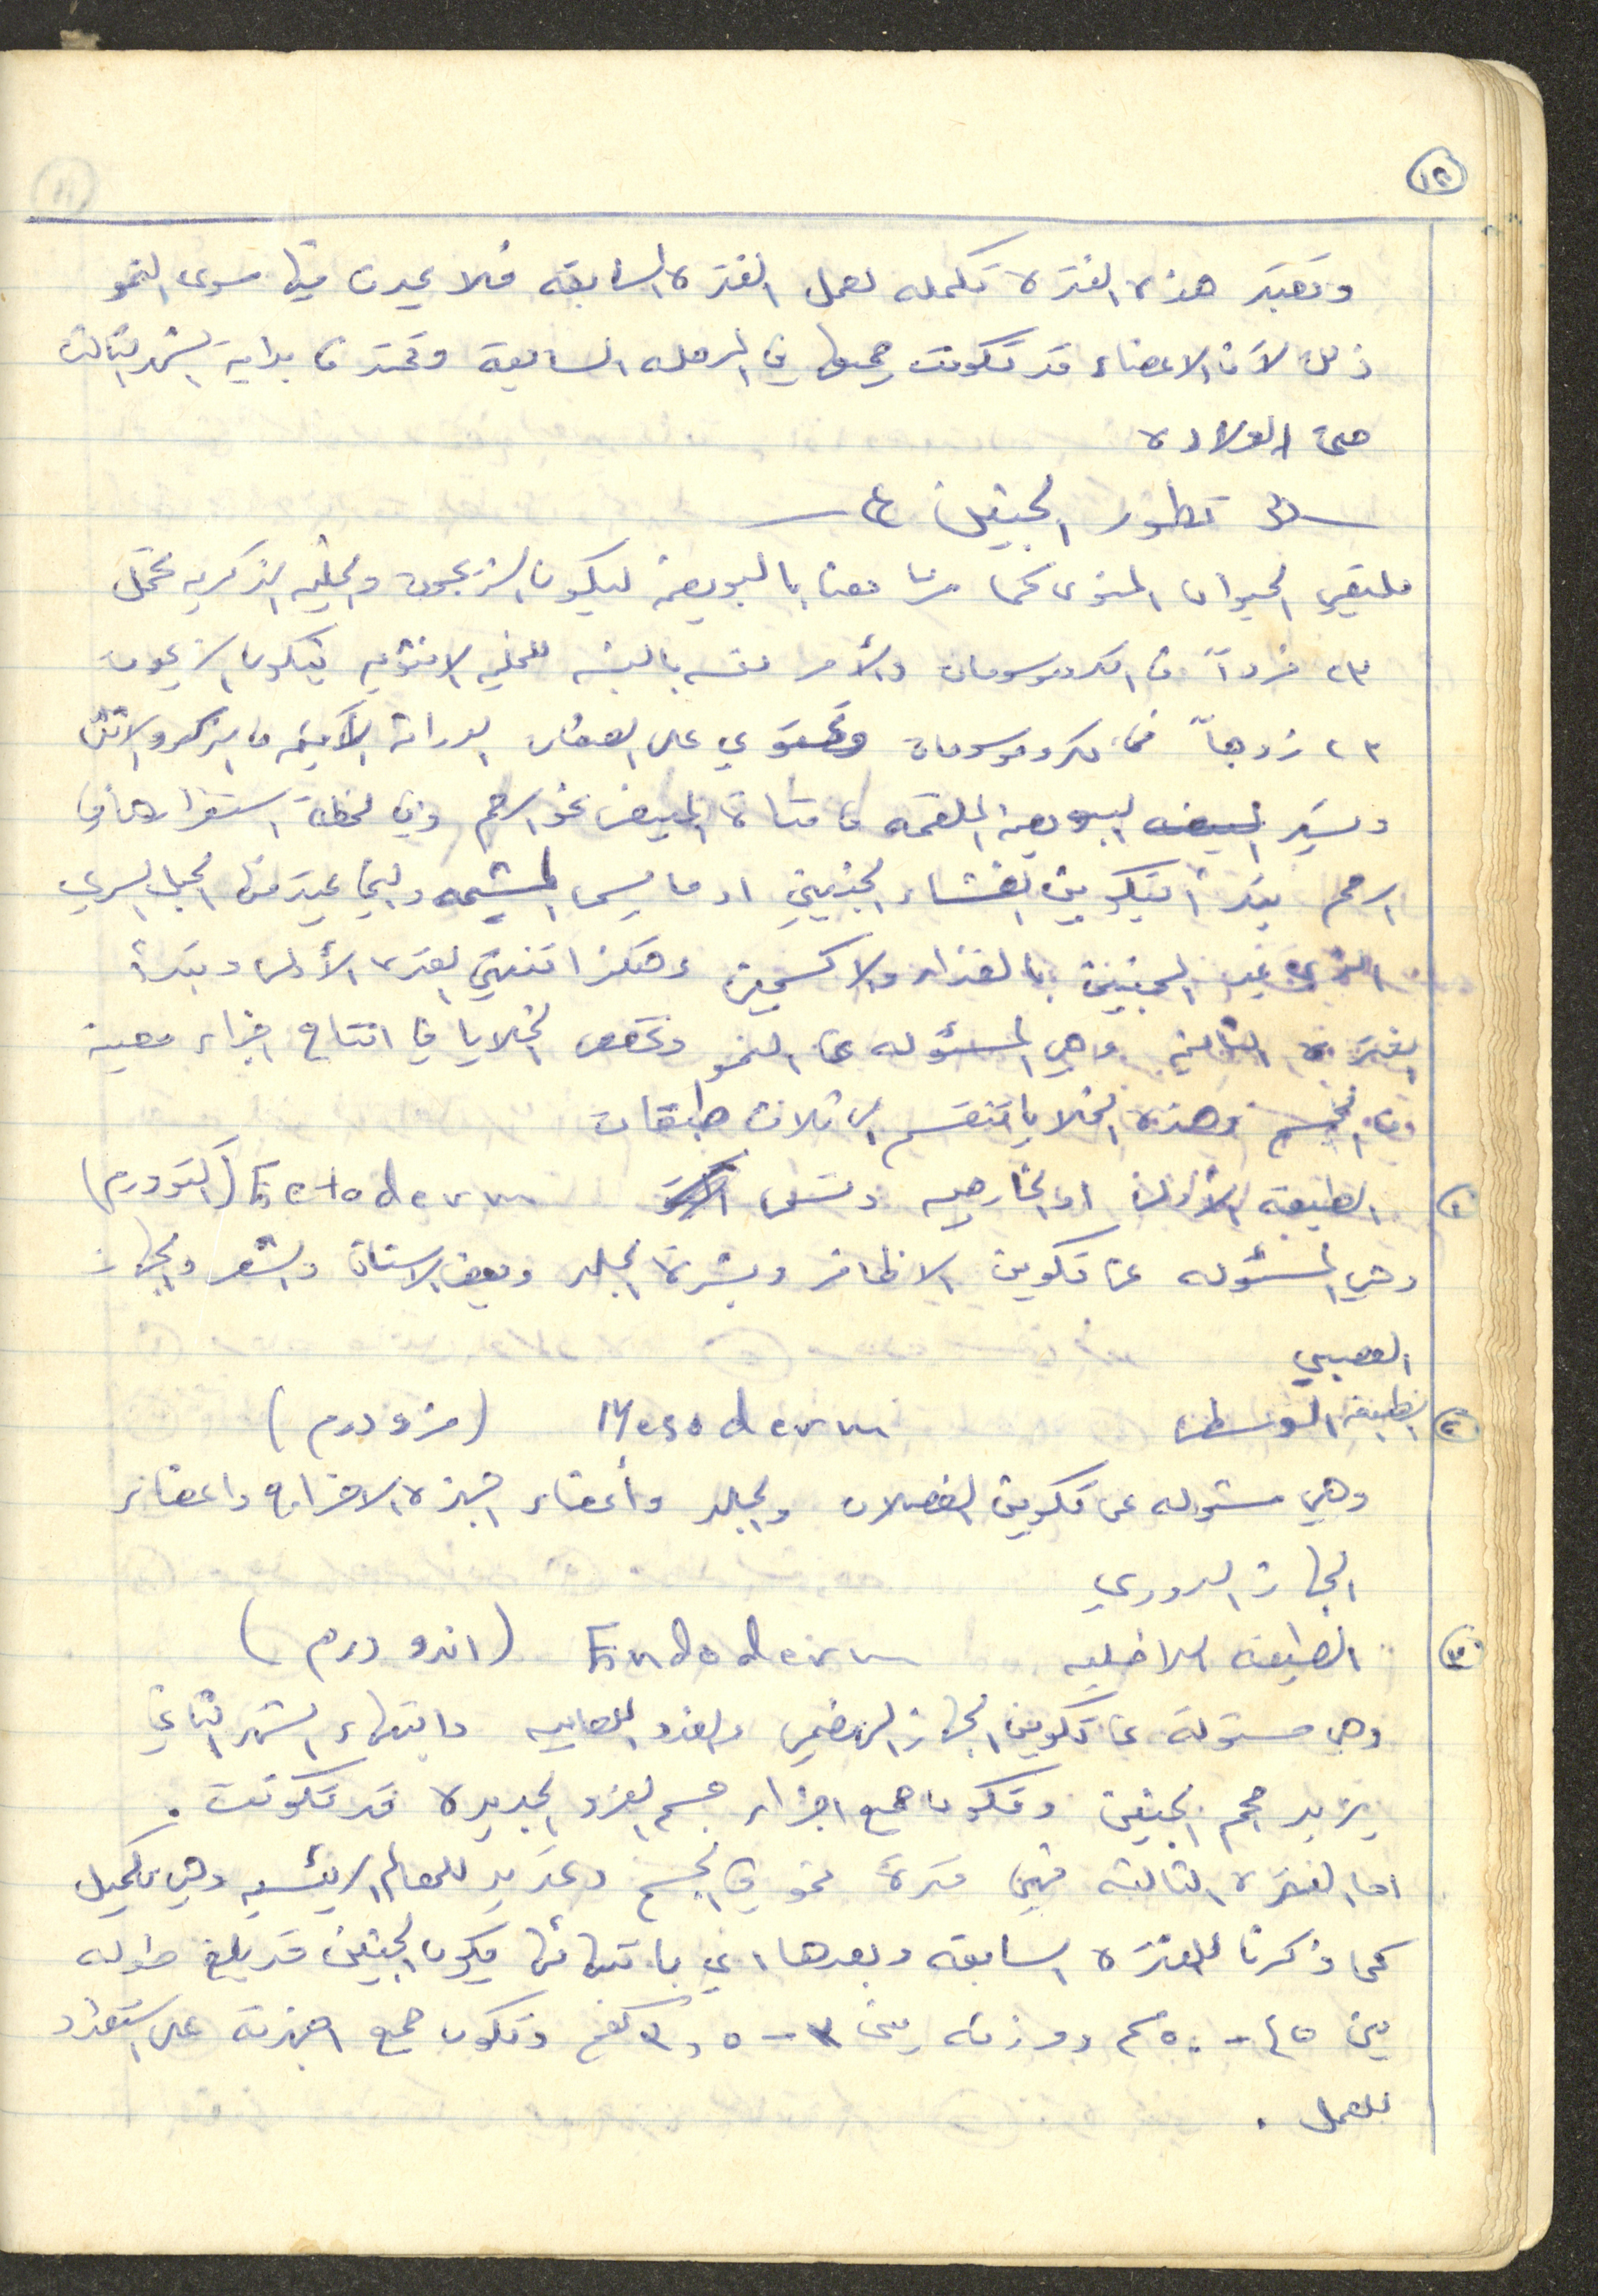 ١٢
وتعتبر هذه الفترة تكمله لعمل الفترة السابقه فلا يحدث فيها سوى النمو
ذلك لأن الاعضاء قد تكونت جميعها في المرحله السابقة وتمتد من بداية الشهر الثالث
حتى الولادة
تطور الجنين
يلتقي الحيوان المنوي كما مر معنا بالبويضة ليكون الزيجوت والخليه الذكريه تحمل
٢٣ فرداً من الكروموسومات والأمر نفسه بالنسبه للخليه الانثويه فيكون الزيجوت
٢٣ زوجاً من الكروموسومات وتحتوي على الصفات الوراثية الآتيه من الذكر والانثى
وتسير البويضة الملقحه من قناة المبيض نحو الرحم وفي لحظة استقرارها في
الرحم يبدأ بتكوين الغشاء الجنيني او ما يسمى المشيمه والتي يمتد منها الحبل السري
الذي يمد الجنين بالغذاء والاكسجين وهكذا تنتهي الفترة الأولى وتبدأ
الفترة الثانية وهي المسئوله عن النمو وتخصص الخلايا في انتاج اجزاء معينة
من الجسم وهذه الخلايا تنقسم الى ثلاث طبقات
١ الطبقة الأولى او الخارجيه وتسمى Ectoderm (اكتودرم)
وهي المسئوله عن تكوين الاظافر وبشرة الجلد وبعض الاسنان والشعر والجهاز
العصبي
٢ الطبقة الوسطى Mesoderm (مزودرم)
وهي مسئوله عن تكوين العضلات والجلد وأعضاء اجهزة الاخراج واعضاء
الجهاز الدوري
٣ الطبقة الداخليه Endoderm (اندودرم)
وهي مسئولة عن تكوين الجهاز الهضمي والغدد اللعابيه وبانتهاء الشهر الثاني
يزيد حجم الجنين وتكون جميع اجزاء جسم الفرد الجديدة قد تكونت .
اما الفترة الثالثه فهي فترة نمو في الجسم وتحديد للمعالم الرئيسيه وهي تكميل
كما ذكرنا للفترة السابقه وبعدها اي بانتهائها يكون الجنين قد بلغ طوله
بين ٤٥ - ٥٠ سم ووزنه بين ٣ - ٣,٥ كغم وتكون جميع اجهزته على استعداد
للعمل .